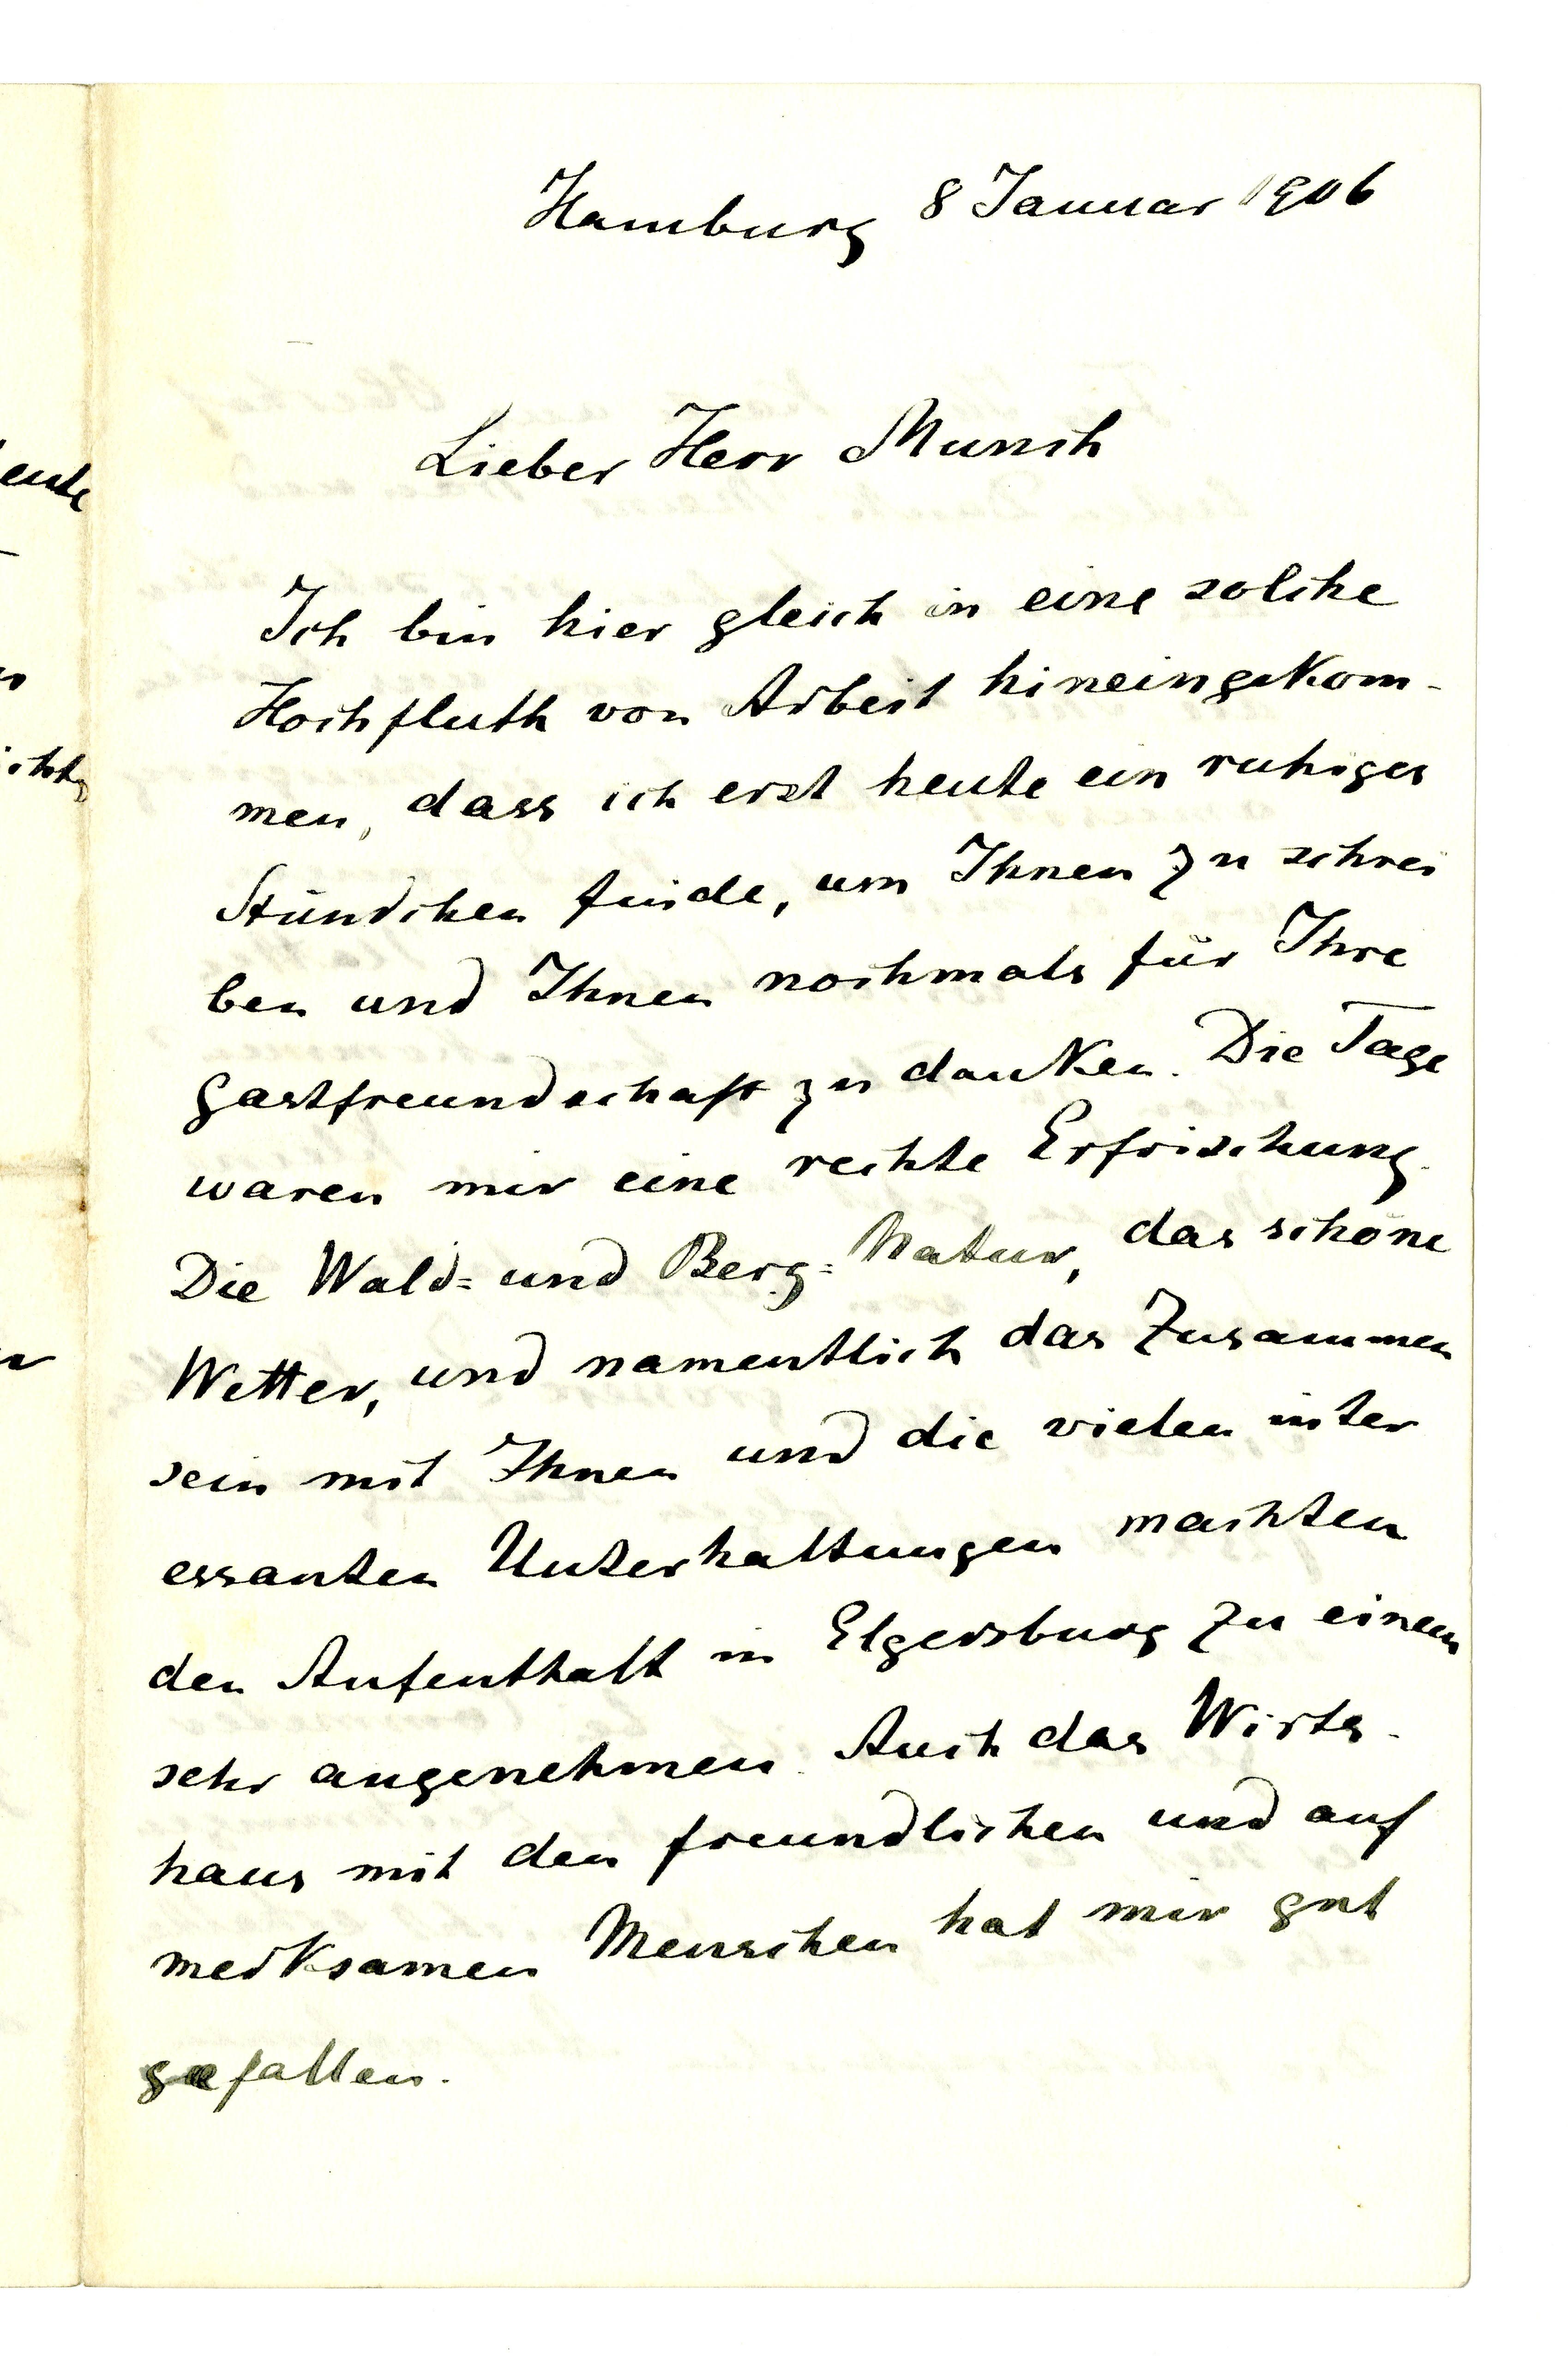 Hamburg 8 Januar 1906
Lieber Herr Munch
Ich bin hier gleich in eine solche
Hochfluth von Arbeit hineingekom-
men, dass ich erst heute ein ruhiges
Stündchen finde, um Ihnen zu schrei
ben und Ihnen nochmals für Ihre
Gastfreundschaft zu danken. Die Tage
waren mir eine rechte Erfrischung.
Die Wald= und Berg=Natur, das schöne
Wetter, und namentlich das Zusammen
sein mit Ihnen und die vielen inter
essanten Unterhaltungen machten
den Aufenthalt in Elgersburg zu einem
sehr angenehmen. Auch das Wirts-
haus mit den freundlichen und auf
merksamen Menschen hat mir gut
gefallen.